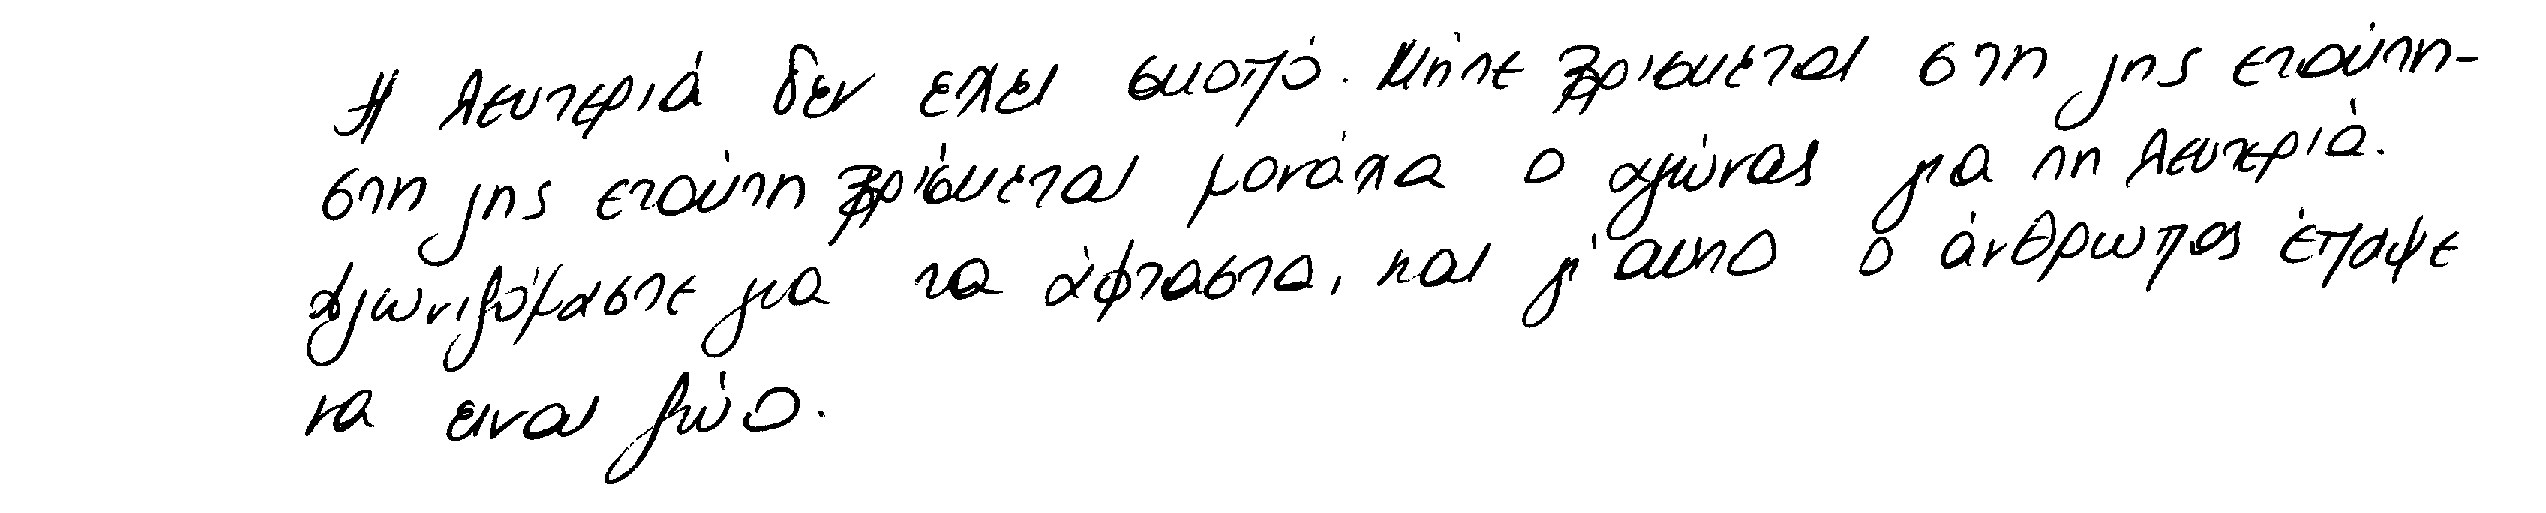 Η λευτεριά δεν εχει σκοπό. Μήτε βρίσκεται στη γης ετούτη-
στη γης ετούτη βρίσκεται μονάχα ο αγώνας για τη λευτεριά.
αγωνιζόμαστε για τα άφταστα, και γι' αυτο ο άνθρωπος έπαψε
να ειναι ζώο.